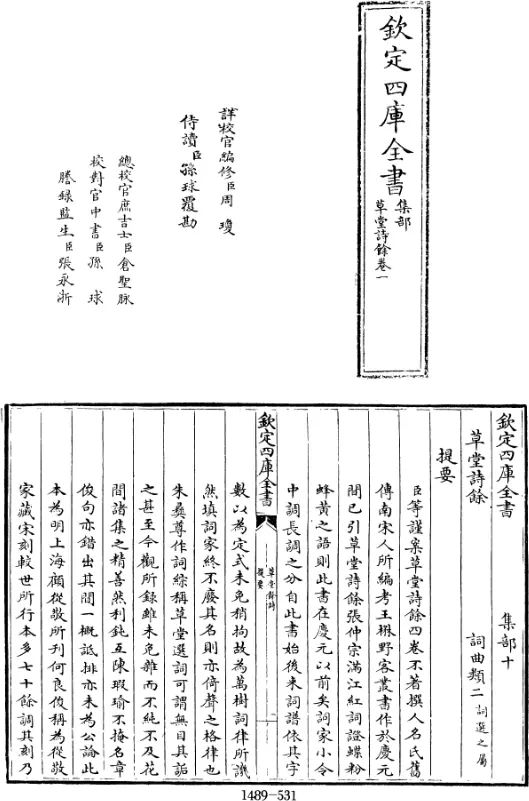 欽定四庫全書
集部
草堂詩餘卷一
詳校官編修臣周瓊
侍讀臣孫球覆勘
總校官庶吉士臣倉聖脉
校對官中書臣孫球
謄錄監生臣張永浙
欽定四庫全書 集部十
草堂詩餘 詞曲類二 詞選之屬
提要
臣等謹案草堂詩餘四卷不著撰人名氏舊
傳南宋人所編考王楙野客叢書作於慶元
間已引草堂詩餘張仲宗滿江紅詞證蝶粉
蜂黃之語則此書在慶元以前矣詞家小令
中調長調之分自此書始後來詞譜依其字
欽定四庫全書
草堂詩餘
提要
數以為定式未免稍拘故為萬樹詞律所譏
然填詞家終不廢其名則亦倚聲之格律也
朱彝尊作詞綜稱草堂選詞可謂無目其詬
之甚至今觀所録雖未免雜而不純不及花
間諸集之精善然利鈍互陳瑕瑜不掩名章
俊句亦錯出其間一概詆排亦未為公論此
本為明上海顧從敬所刊何良俊稱為從敬
家藏宋刻較世所行本多七十餘調其刻乃
1489-531